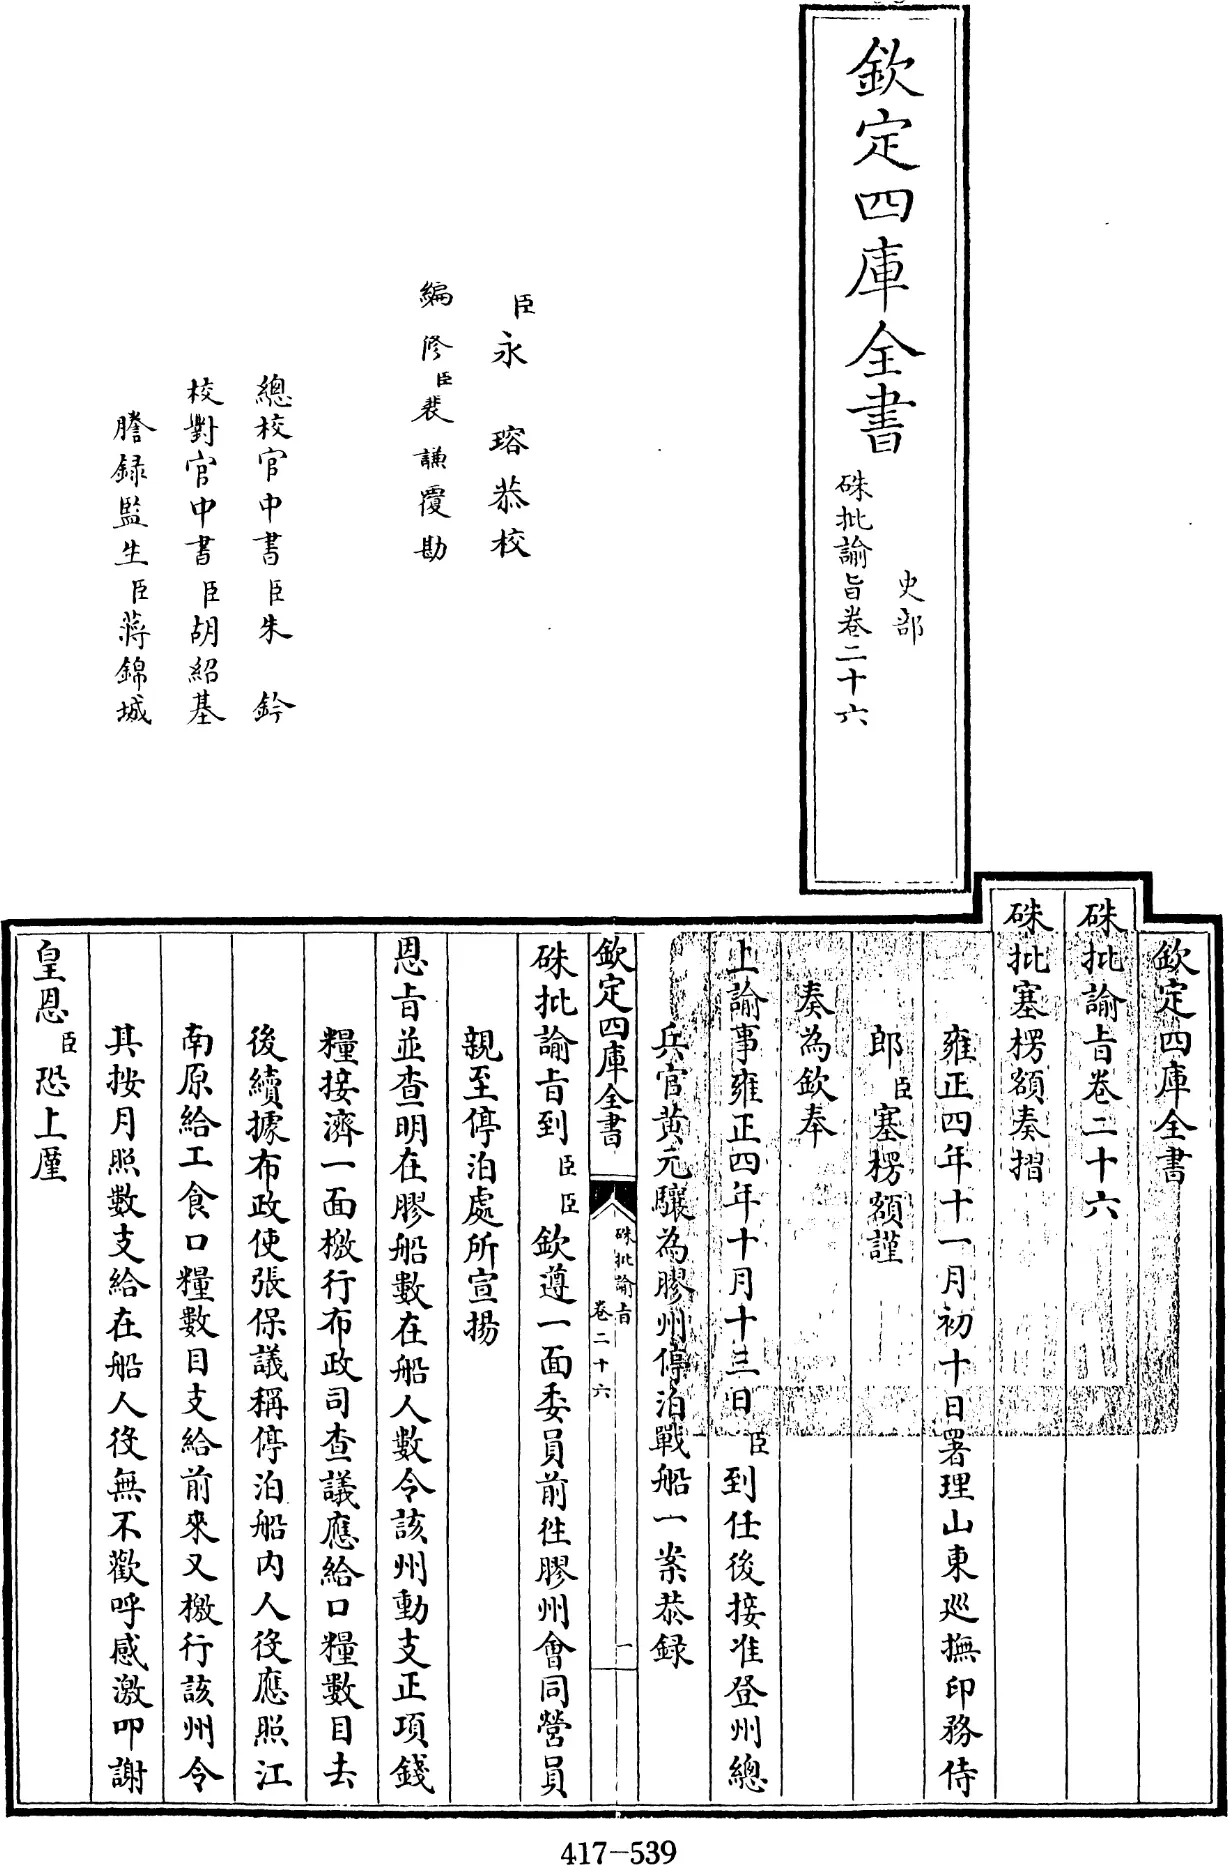 欽定四庫全書
史部
硃批諭旨卷二十六
臣永瑢恭校
編修臣裴謙覆勘
總校官中書臣朱鈐
校對官中書臣胡紹基
謄録監生臣蔣錦城
欽定四庫全書
硃批諭旨卷二十六
硃批塞楞額奏摺
雍正四年十一月初十日署理山東巡撫印務侍
郎臣塞楞額謹
奏為欽奉
上諭事雍正四年十月十三日臣到任後接准登州總
兵官黄元驤為膠州停泊戰船一案恭録
欽定四庫全書
硃批諭旨
卷二十六
一
硃批諭旨到臣臣欽遵一面委員前徃膠州會同營員
親至停泊處所宣揚
恩旨並查明在膠船數在船人數令該州動支正項錢
糧接濟一面檄行布政司查議應給口糧數目去
後續據布政使張保議稱停泊船内人役應照江
南原給工食口糧數目支給前來又檄行該州令
其按月照數支給在船人役無不歡呼感激叩謝
皇恩臣恐上厪
417-539